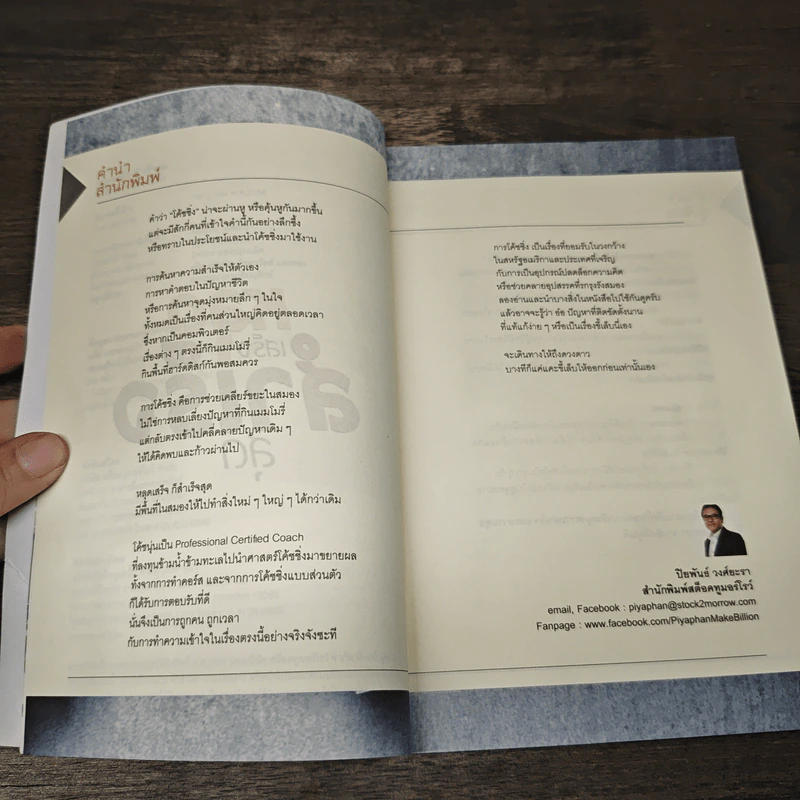 คำนำ
สำนักพิมพ์
คำว่า "โค้ชชิ่ง" น่าจะผ่านหู หรือคุ้นหูกันมากขึ้น
แต่จะมีสักกี่คนที่เข้าใจคำนี้กันอย่างลึกซึ้ง
หรือทราบในประโยชน์และนำโค้ชชิ่งมาใช้งาน
การค้นหาความสำเร็จให้ตัวเอง
การหาคำตอบในปัญหาชีวิต
หรือการค้นหาจุดมุ่งหมายลึก ๆ ในใจ
ทั้งหมดเป็นเรื่องที่คนส่วนใหญ่คิดอยู่ตลอดเวลา
ซึ่งหากเป็นคอมพิวเตอร์
เรื่องต่าง ๆ ตรงนี้ก็กินเมมโมรี่
กินพื้นที่ฮาร์ดดิสก์กันพอสมควร
การโค้ชชิ่ง คือการช่วยเคลียร์ขยะในสมอง
ไม่ใช่การหลบเลี่ยงปัญหาที่กินเมมโมรี่
แต่กลับตรงเข้าไปคลี่คลายปัญหาเดิม ๆ
ให้ได้คิดพบและก้าวผ่านไป
หลุดเสร็จ ก็สำเร็จสุด
มีพื้นที่ในสมองให้ไปทำสิ่งใหม่ ๆ ใหญ่ ๆ ได้กว่าเดิม
โค้ชนุ่นเป็น Professional Certified Coach
ที่ลงทุนข้ามน้ำข้ามทะเลไปนำศาสตร์โค้ชชิ่งมาขยายผล
ทั้งจากการทำคอร์ส และจากการโค้ชชิ่งแบบส่วนตัว
ก็ได้รับการตอบรับที่ดี
นั่นจึงเป็นการถูกคน ถูกเวลา
กับการทำความเข้าใจในเรื่องตรงนี้อย่างจริงจังซะที
การโค้ชชิ่ง เป็นเรื่องที่ยอมรับในวงกว้าง
ในสหรัฐอเมริกาและประเทศที่เจริญ
กับการเป็นอุปกรณ์ปลดล็อกความคิด
หรือช่วยคลายอุปสรรคที่รกรุงรังสมอง
ลองอ่านและนำบางสิ่งในหนังสือไปใช้กันดูครับ
แล้วอาจจะรู้ว่า อ๋อ ปัญหาที่ติดขัดตั้งนาน
ที่แท้แก้ง่าย ๆ หรือเป็นเรื่องขี้เล็บนี่เอง
จะเดินทางให้ถึงดวงดาว
บางทีก็แค่แคะขี้เล็บให้ออกก่อนเท่านั้นเอง
ปิยพันธ์ วงศ์ยะรา
สำนักพิมพ์สต็อคทูมอร์โรว์
email, Facebook : piyaphan@stock2morrow.com
Fanpage : www.facebook.com/PiyaphanMakeBillion